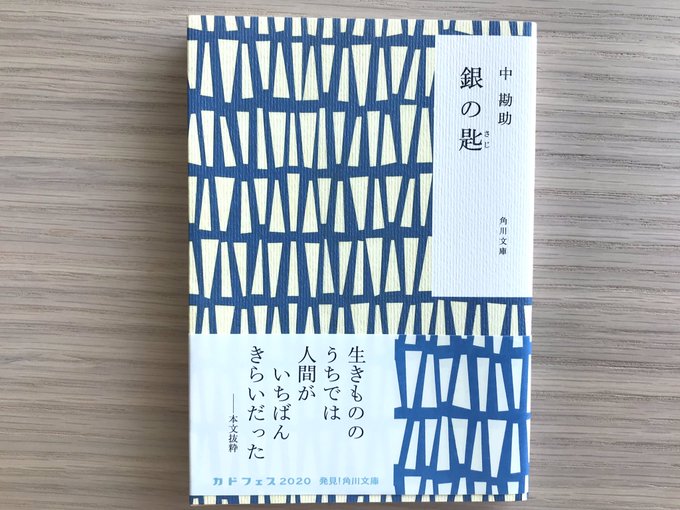 中 勘助
銀の匙
さじ
角川文庫
生きものの
うちでは
人間が
いちばん
きらいだった
──本文抜粋
カドフェス2020 発見!角川文庫